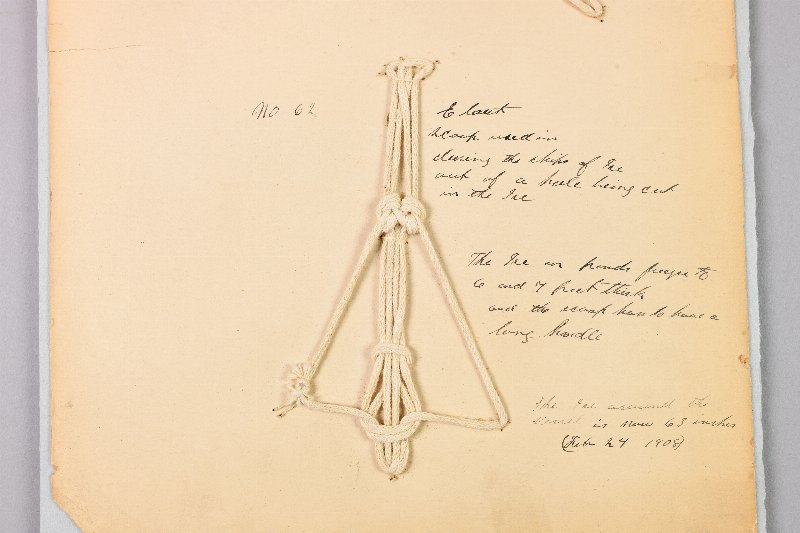 No 62
E lout
scoop used in
clearing the chips of Ice
out of a hole being cut
in the Ice
The Ice on ponds freezes to
6 and 7 feet thick
and the scoop has to have a
long handle
The Ice around the
is now 63 inches
(Feb 24 1908)